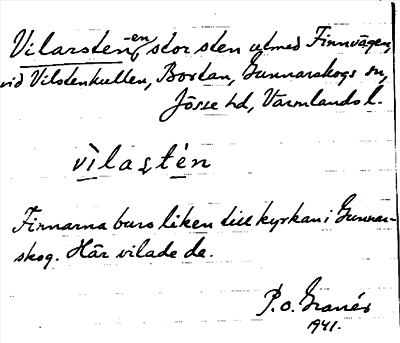 Vilarsten, -en, stor sten utmed Finnvägen
vid Vilstenkullen, Bortan, Gunnarskogs sn,
Jösse hd, Värmlands l.
vilastén
Finnarna buro liken till kyrkan i Gunnar-
skog. Här vilade de.
P.O. Granér
1941.